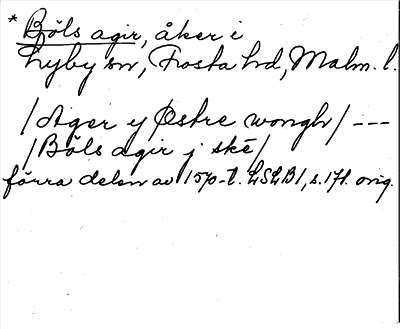 * Bföls agir, åker i
Lyby sn, Frosta hd, Malm. l.
/Ager y Østre wongh/ ---
/Böls agir j skė/
förra delen av 1500-t. LSLB1, s. 171. orig.